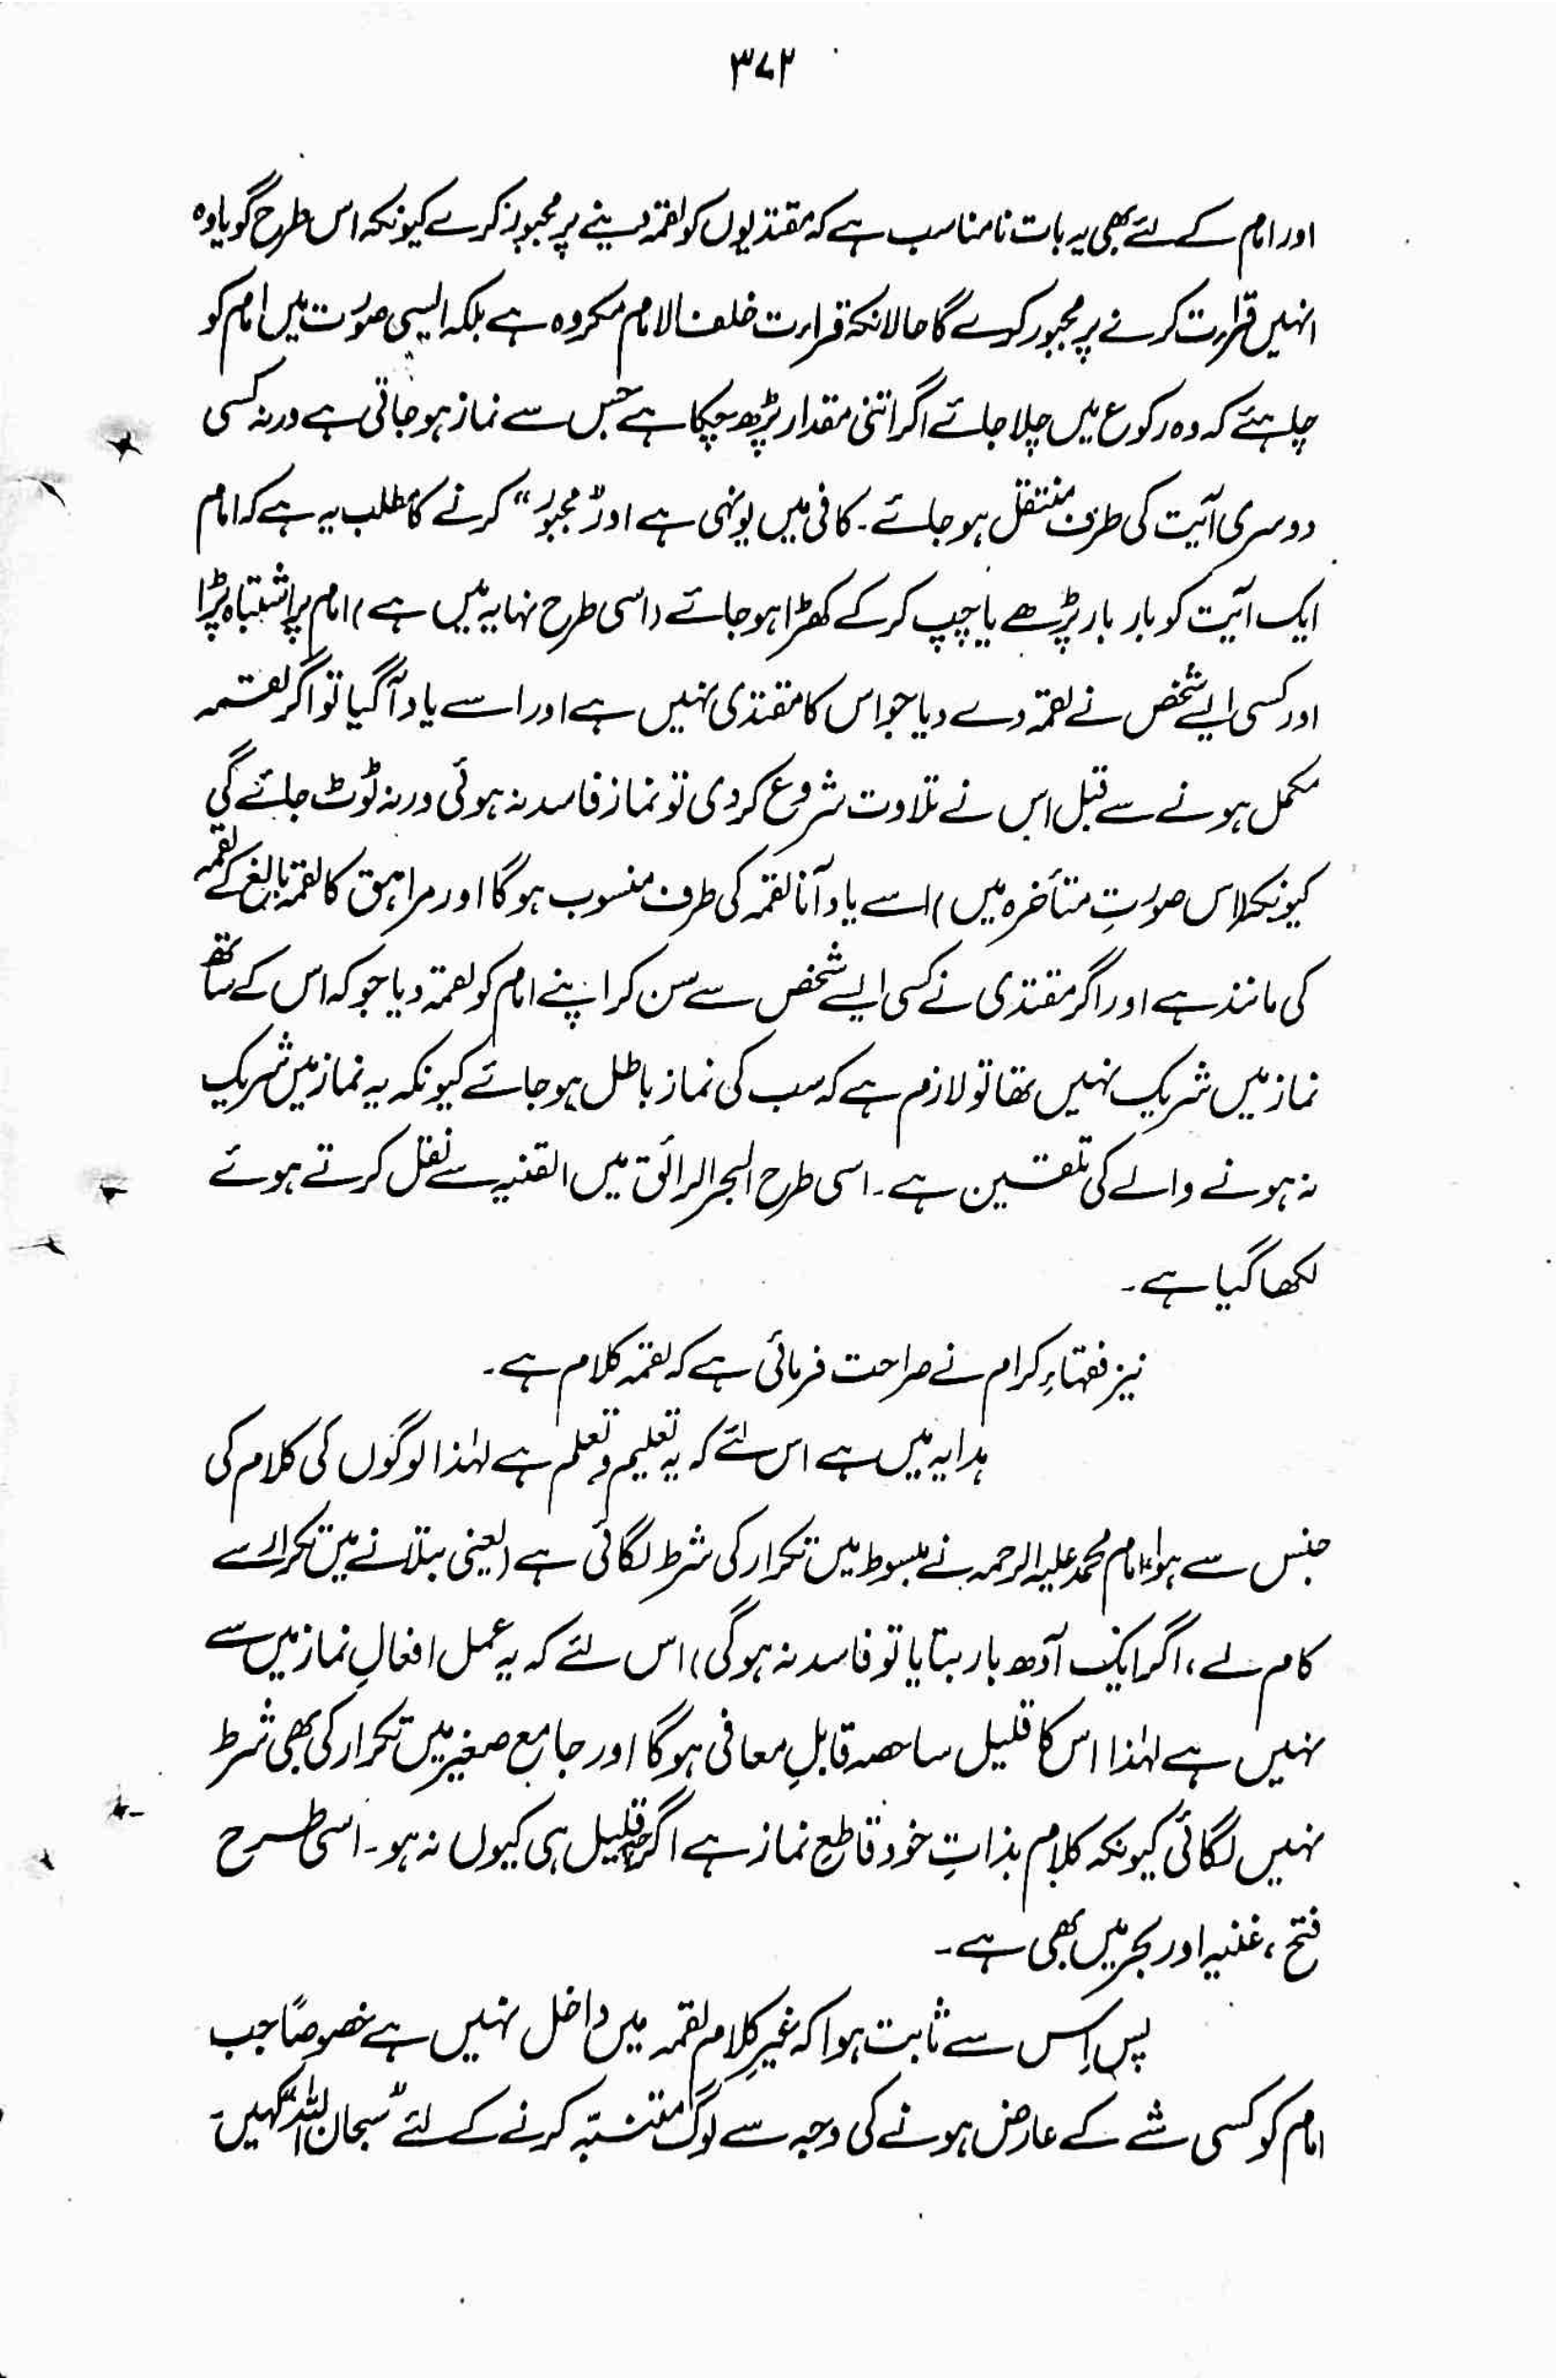 ۳۷۲
اور امام کے لئے بھی یہ بات نامناسب ہے کہ مقتدیوں کو لقمہ دینے پر مجبور نہ کرے کیونکہ اس طرح گویا وہ
انہیں قرارت کرنے پر مجبور کرے گا حالانکہ قرارت خلف الامام مکروہ ہے بلکہ ایسی صورت میں امام کو
چاہئے کہ وہ رکوع میں چلا جائے اگر اتنی مقدار پڑھ چکا ہے جس سے نماز ہو جاتی ہے ورنہ کسی
دوسری آیت کی طرف منتقل ہو جائے۔ کافی میں یونہی ہے اور ”مجبور“ کرنے کا مطلب یہ ہے کہ امام
ایک آیت کو بار بار پڑھے یا چپ کر کے کھڑا ہو جائے (اسی طرح نہایہ میں ہے) امام پر اشتباہ پڑا
اور کسی ایسے شخص نے لقمہ دے دیا جو اس کا مقتدی نہیں ہے اور اسے یاد آ گیا تو اگر لقمہ
مکمل ہونے سے قبل اس نے تلاوت شروع کر دی تو نماز فاسد نہ ہوئی ورنہ ٹوٹ جائے گی
کیونکہ (اس صورتِ متأخرہ میں) اسے یاد آنا لقمہ کی طرف منسوب ہو گا اور مراہق کا لقمہ بالغ کے لقمہ
کی مانند ہے اور اگر مقتدی نے کسی ایسے شخص سے سن کر اپنے امام کو لقمہ دیا جو کہ اس کے ساتھ
نماز میں شریک نہیں تھا تو لازم ہے کہ سب کی نماز باطل ہو جائے کیونکہ یہ نماز میں شریک
نہ ہونے والے کی تلقین ہے۔ اسی طرح البحر الرائق میں القنیہ سے نقل کرتے ہوئے
لکھا گیا ہے۔
نیز فقہاءِ کرام نے صراحت فرمائی ہے کہ لقمہ کلام ہے۔
ہدایہ میں ہے اس لئے کہ یہ تعلیم و تعلم ہے لہٰذا لوگوں کی کلام کی
جنس سے ہوا، امام محمد علیہ الرحمہ نے مبسوط میں تکرار کی شرط لگائی ہے (یعنی بتلانے میں تکرار سے
کام لے، اگر ایک آدھ بار بتایا تو فاسد نہ ہو گی) اس لئے کہ یہ عمل افعالِ نماز میں سے
نہیں ہے لہٰذا اس کا قلیل سا حصہ قابلِ معافی ہو گا اور جامع صغیر میں تکرار کی بھی شرط
نہیں لگائی کیونکہ کلام بذاتِ خود قاطعِ نماز ہے اگرچہ قلیل ہی کیوں نہ ہو۔ اسی طرح
فتح، غنیہ اور بحر میں بھی ہے۔
پس اِس سے ثابت ہوا کہ غیرِ کلام لقمہ میں داخل نہیں ہے خصوصًا جب
امام کو کسی شے کے عارض ہونے کی وجہ سے لوگ متنبّہ کرنے کے لئے ”سبحان اللہ“ کہیں۔